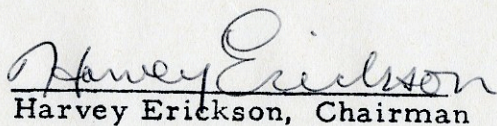 Harvey Erickson
Harvey Erickson, Chairman